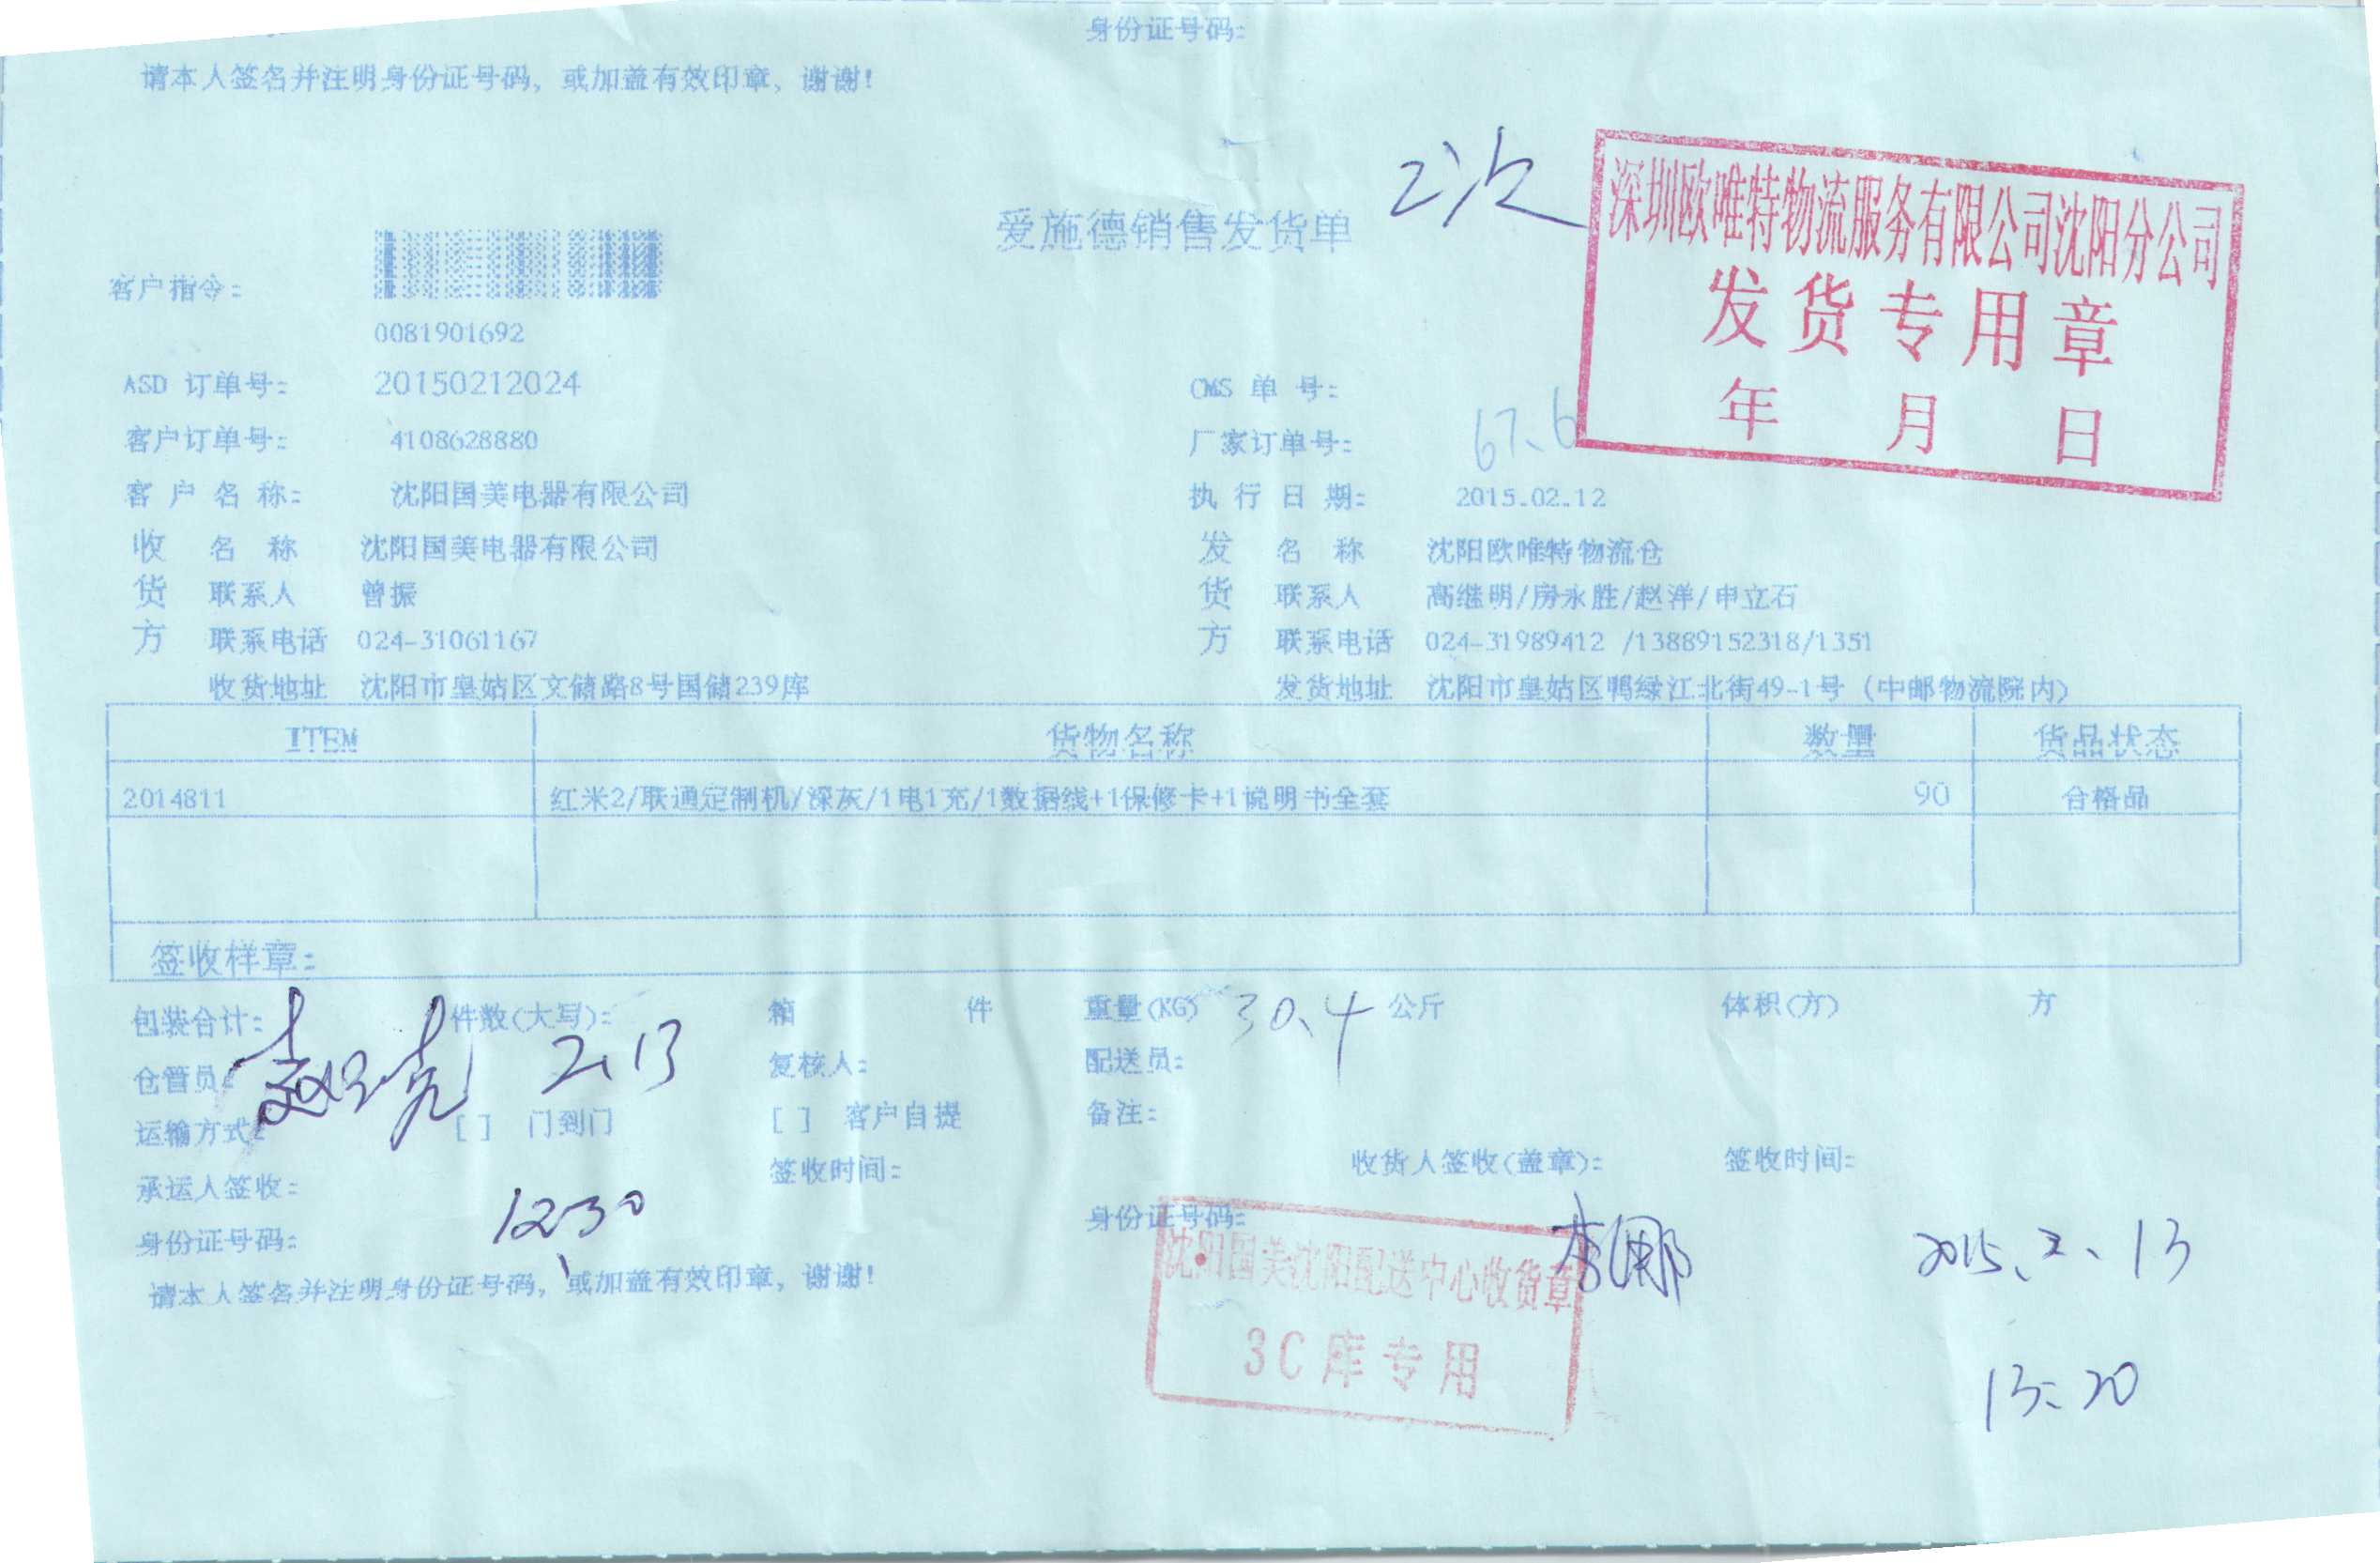 身份证号码:
请本人签名并注明身份证号码, 或加盖有效印章, 谢谢!
爱施德销售发货单 2次
深圳欧唯特物流服务有限公司沈阳分公司
发货专用章
年 月 日
客户指令:
0081901692
ASD 订单号: 20150212024 OMS 单 号:
客户订单号: 4108628880 厂家订单号: 67.6
客 户 名 称: 沈阳国美电器有限公司 执 行 日 期: 2015.02.12
收 名 称 沈阳国美电器有限公司 发 名 称 沈阳欧唯特物流仓
货 联系人 曾振 货 联系人 高继明/房永胜/赵洋/申立石
方 联系电话 024-31061167 方 联系电话 024-31989412 /13889152318/1351
收货地址 沈阳市皇姑区文储路8号国储239库 发货地址 沈阳市皇姑区鸭绿江北街49-1号 (中邮物流院内)
ITEM 货物名称 数量 货品状态
2014811 红米2/联通定制机/深灰/1电1充/1数据线+1保修卡+1说明书全套 90 合格品
签收样章:
包装合计: 件数(大写): 箱 件 重量(KG) 30.4 公斤 体积(方) 方
仓管员: 2.13 复核人: 配送员:
运输方式: [ ] 门到门 [ ] 客户自提 备注:
承运人签收: 签收时间: 收货人签收(盖章): 签收时间:
身份证号码: 12:30 身份证号码: 2015.2.13
请本人签名并注明身份证号码, 或加盖有效印章, 谢谢!
沈阳国美沈阳配送中心收货章
3C库专用
13:20